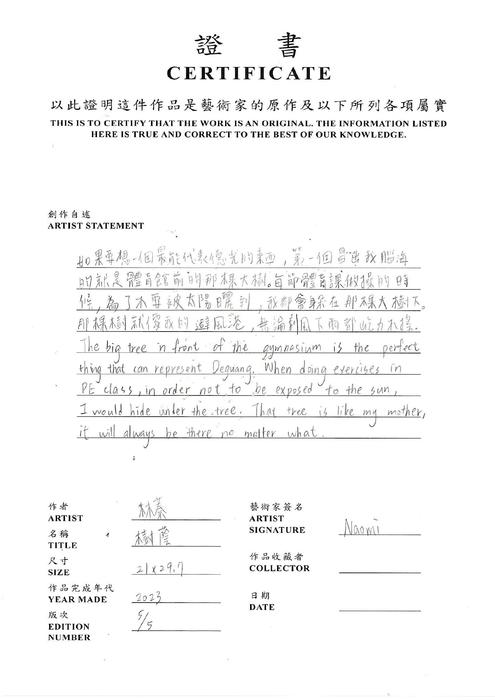 證 書
CERTIFICATE
以此證明這件作品是藝術家的原作及以下所列各項屬實
THIS IS TO CERTIFY THAT THE WORK IS AN ORIGINAL. THE INFORMATION LISTED
HERE IS TRUE AND CORRECT TO THE BEST OF OUR KNOWLEDGE.
創作自述
ARTIST STATEMENT
如果要想一個最能代表德光的東西,第一個冒進我腦海
的就是體育館前的那棵大樹。每節體育課做操的時
候,為了不要被太陽曬到,我都會躲在那棵大樹下。
那棵樹就像我的避風港,無論刮風下雨都屹立不搖。
The big tree in front of the gymnasium is the perfect
thing that can represent Deguang. When doing exercises in
PE class, in order not to be exposed to the sun,
I would hide under the tree. That tree is like my mother,
it will always be there no matter what.
作者
ARTIST
林蓁
名稱
TITLE
樹蔭
尺寸
SIZE
21x29.7
作品完成年代
YEAR MADE
2023
版次
EDITION
NUMBER
5/5
藝術家簽名
ARTIST
SIGNATURE
Naomi
作品收藏者
COLLECTOR
日期
DATE